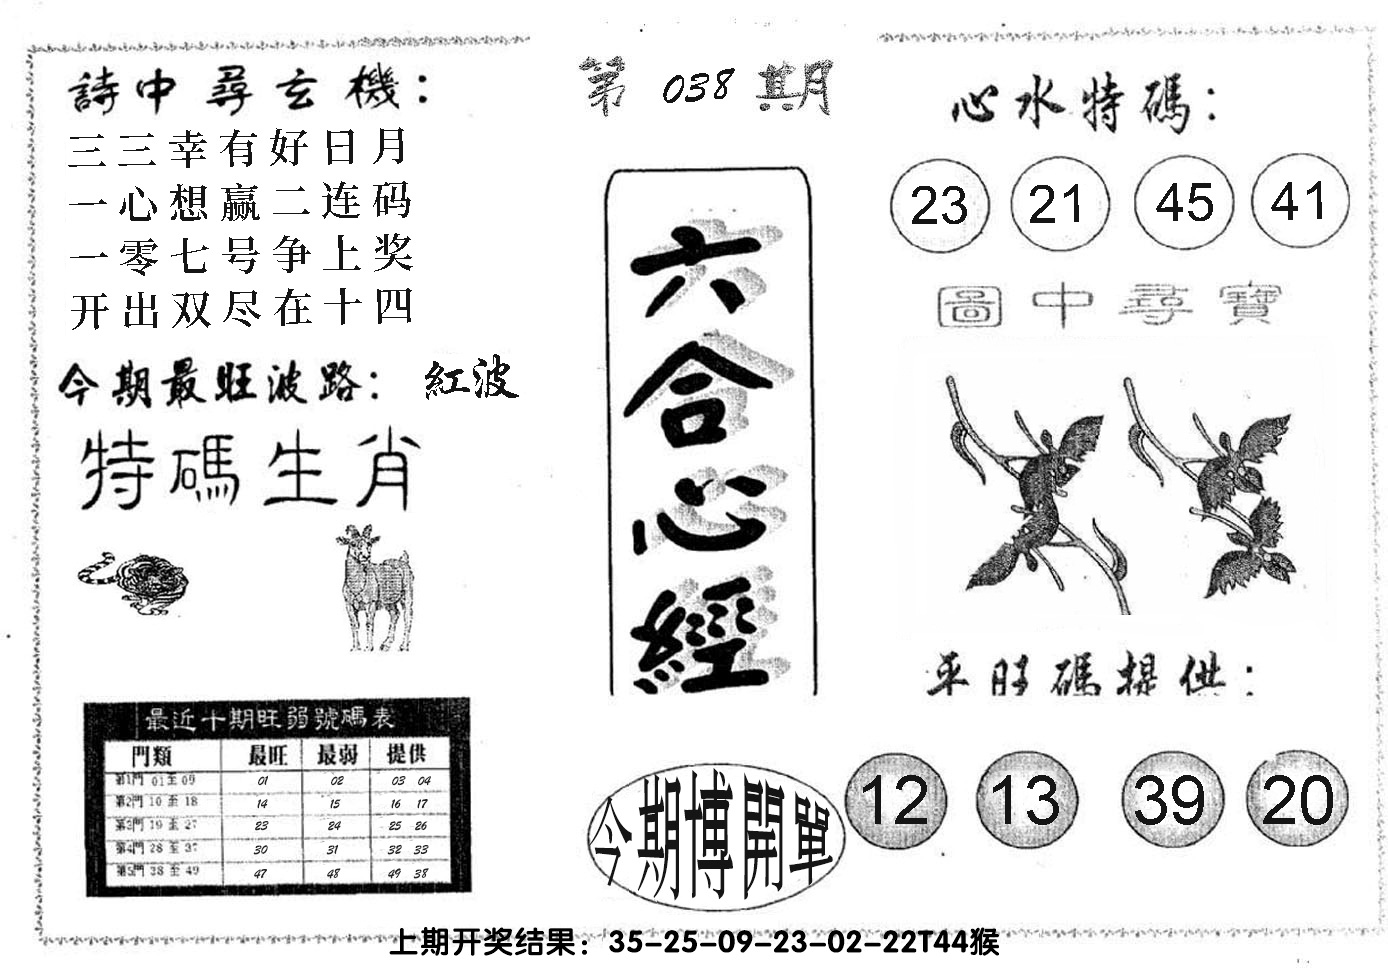 詩中尋玄機：
三三幸有好日月
一心想赢二连码
一零七号争上奖
开出双尽在十四
今期最旺波路：紅波
特碼生肖
最近十期旺弱號碼表
門類 最旺 最弱 提供
第1門 01至09 01 02 03 04
第2門 10至18 14 15 16 17
第3門 19至27 23 24 25 26
第4門 28至37 30 31 32 33
第5門 38至49 47 48 49 38
第038期
六合心經
今期博開單
心水特碼：
23 21 45 41
圖中尋寶
平旺碼提供：
12 13 39 20
上期开奖结果：35-25-09-23-02-22T44猴